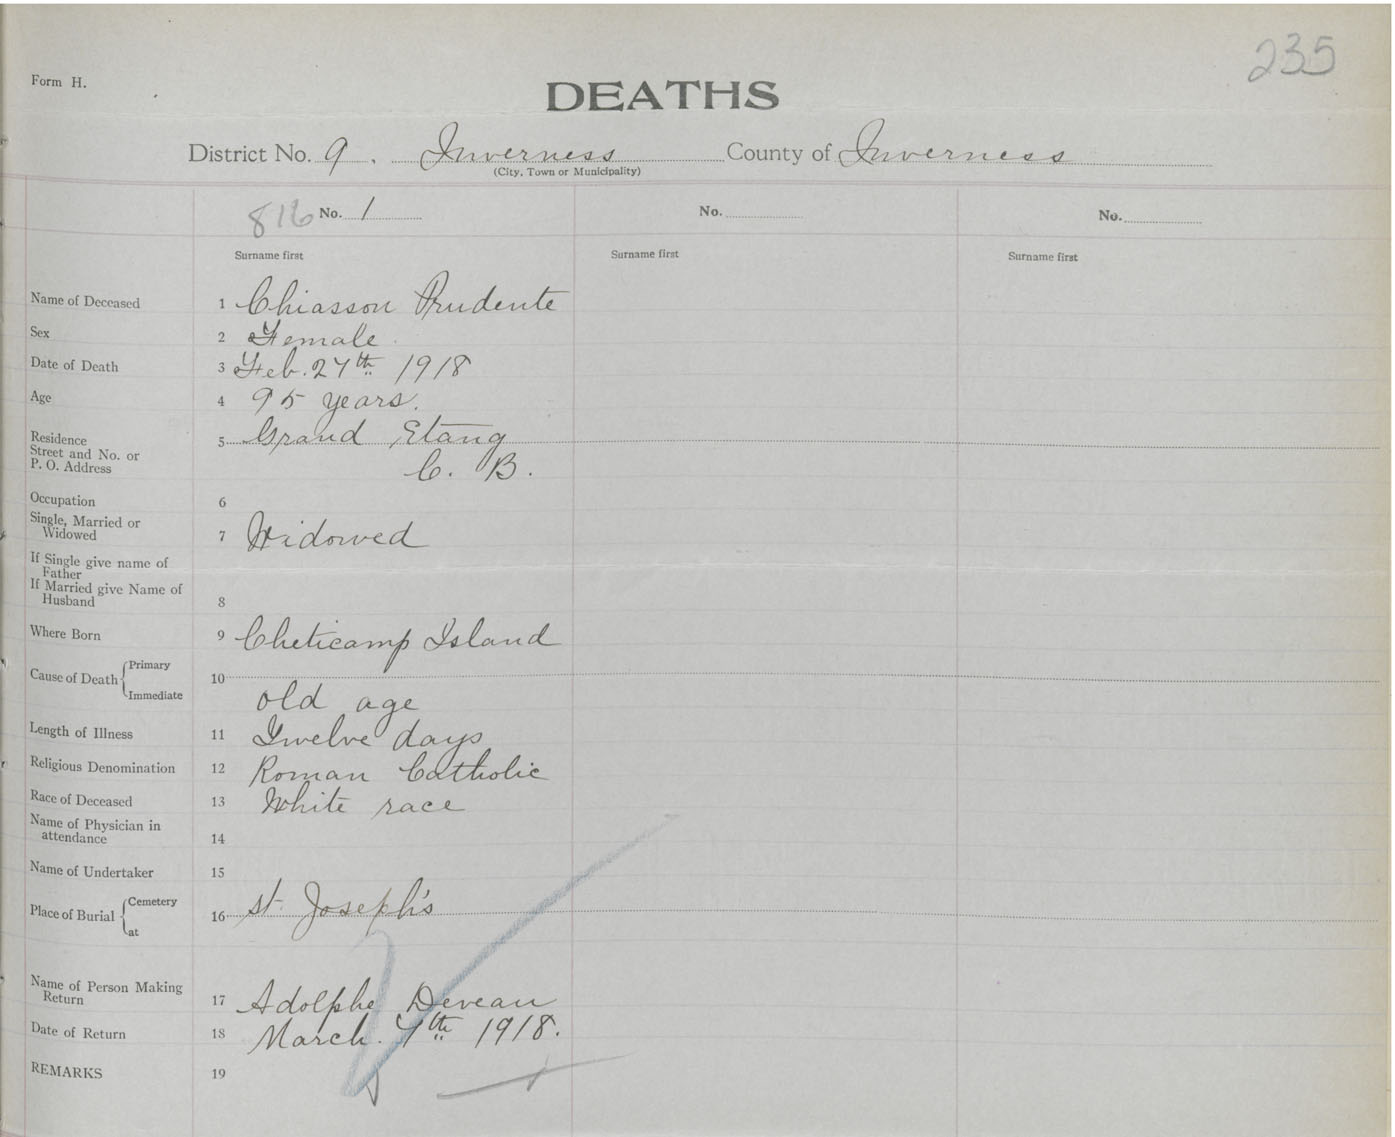 235
Form H.
DEATHS
District No. 9. Inverness County of Inverness
(City, Town or Municipality)
816 No. 1 No. No.
Surname first Surname first Surname first
Name of Deceased 1 Chiasson Prudente
Sex 2 Female.
Date of Death 3 Feb. 27th 1918
Age 4 95 years.
Residence
Street and No. or
P. O. Address
5 Grand Etang
C. B.
Occupation 6
Single, Married or
Widowed 7 Widowed
If Single give name of
Father
If Married give Name of
Husband 8
Where Born 9 Cheticamp Island
Cause of Death Primary
Immediate
10 old age
Length of Illness 11 Twelve days
Religious Denomination 12 Roman Catholic
Race of Deceased 13 White race
Name of Physician in
attendance 14
Name of Undertaker 15
Place of Burial Cemetery
at
16 St. Joseph's
Name of Person Making
Return 17 Adolphe Deveau
Date of Return 18 March. 7th 1918.
REMARKS 19